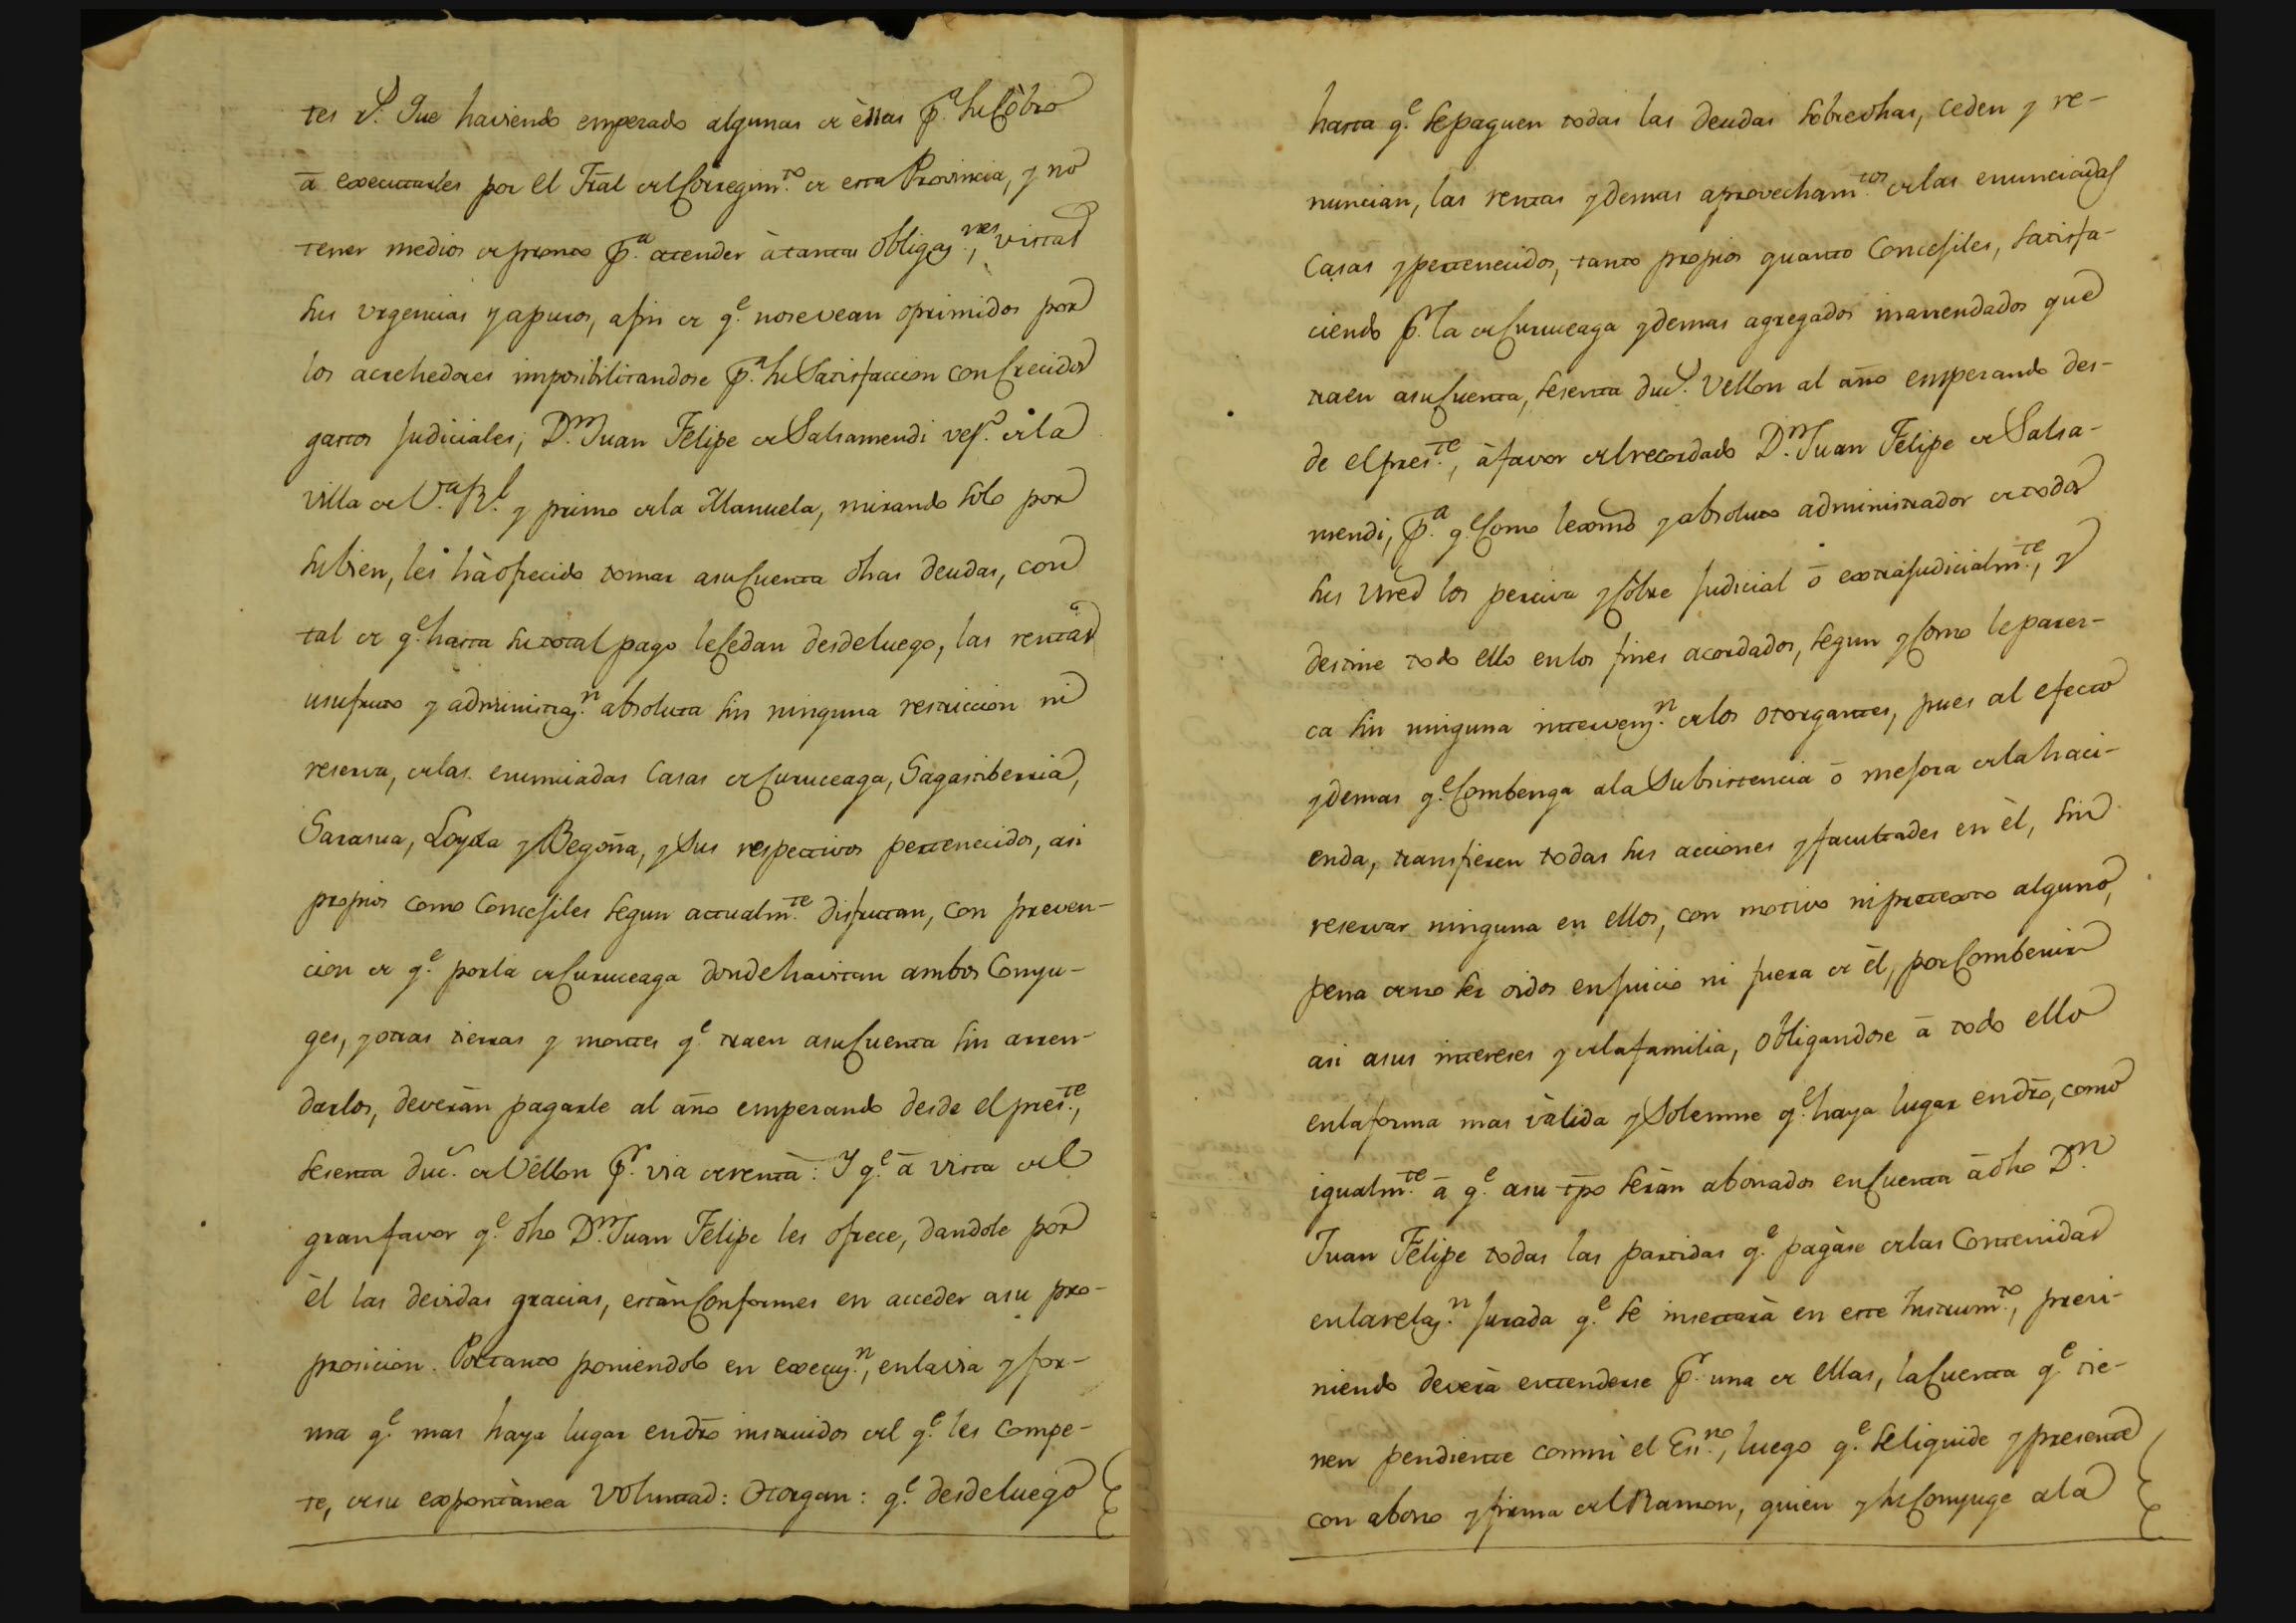 tes r.s Que haviendo empezado algunas de èllas p.a su Cobro
à executarles por el Tral del Corregim.to de esta Provincia, y no
tener medios de pronto p.a atender à tantas obligaz.nes, vistas
sus urgencias y apuros, afin de q.e nosevean oprimidos por
los acrehedores imposibilitandose p.a su Satisfaccion con Crecidos
gastos Judiciales; D.n Juan Felipe de Salsamendi vez.o dela
Villa de V.a R.l y primo dela Manuela, mirando solo por
subien, les hà ofrecido tomar asu Cuenta dhas deudas, con
tal de q.e hasta su total pago le Cedan desdeluego, las rentas
usufruto y administraz.n absoluta sin ninguna restriccion ni
reserva, delas enunciadas Casas de Curuceaga, Sagastiberria,
Sarasua, Loyola y Begoña, y Sus respectivos pertenecidos, asi
propios como Concejiles segun actualm.te disfrutan, con preven-
cion de q.e porla de Curuceaga donde havitan ambos Conyu-
ges, y otras tierras y montes q.e traen asu Cuenta sin arren-
darlos, deveràn pagarle al año empezando desde el pres.te,
sesenta duc.s de Vellon p.r via de renta: Y q.e à vista del
gran favor q.e dho D.n Juan Felipe les ofrece, dandole por
èl las devidas gracias, estàn Conformes en acceder asu pro-
prosicion. Portanto poniendolo en execuz.n, enlavia y for-
ma q.e mas haya lugar endro instruidos del q.e les compe-
te, desu expontànea Voluntad: Otorgan: q.e desdeluego
hasta q.e sepaguen todas las deudas sobredhas, ceden y re-
nuncian, las rentas y demas aprovecham.tos delas enunciadas
Casas y pertenecidos, tanto propios quanto Concejiles, satisfa-
ciendo p.r la de Curuceaga y demas agregados inarrendados que
traen asu Cuenta, sesenta duc.s Vellon al año empezando des-
de el pres.te, à favor del recordado D.n Juan Felipe de Salsa-
mendi, p.a q.e Como lexmo y absoluto administrador de todos
sus Vred los perciva y Cobre Judicial ò extrajudicialm.te, y
destine todo ello enlos fines acordados, segun y Como le pares-
ca sin ninguna intervenz.n delos otorgantes, pues al efecto
y demas q.e Combenga ala Subsistencia ò mejora dela haci-
enda, transfieren todas sus acciones y facultades en èl, sin
reservar ninguna en ellos, con motivo ni pretexto alguno,
pena de no ser oidos en Juicio ni fuera de èl, por Combenir
asi asus intereses y dela familia, obligandose à todo ello
enlaforma mas vàlida y Solemne q.e haya lugar endro, como
igualm.te à q.e asu tpo seràn abonados en Cuenta à dho D.n
Juan Felipe todas las partidas q.e pagàse delas Contenidas
enlarelaz.n Jurada q.e se insertarà en este Instrum.to, previ-
niendo deverà entenderse p.r una de ellas, la Cuenta q.e tie-
nen pendiente conmi el Ess.no, luego q.e seliquide y presente
con abono y firma del Ramon, quien y su Conyuge ala